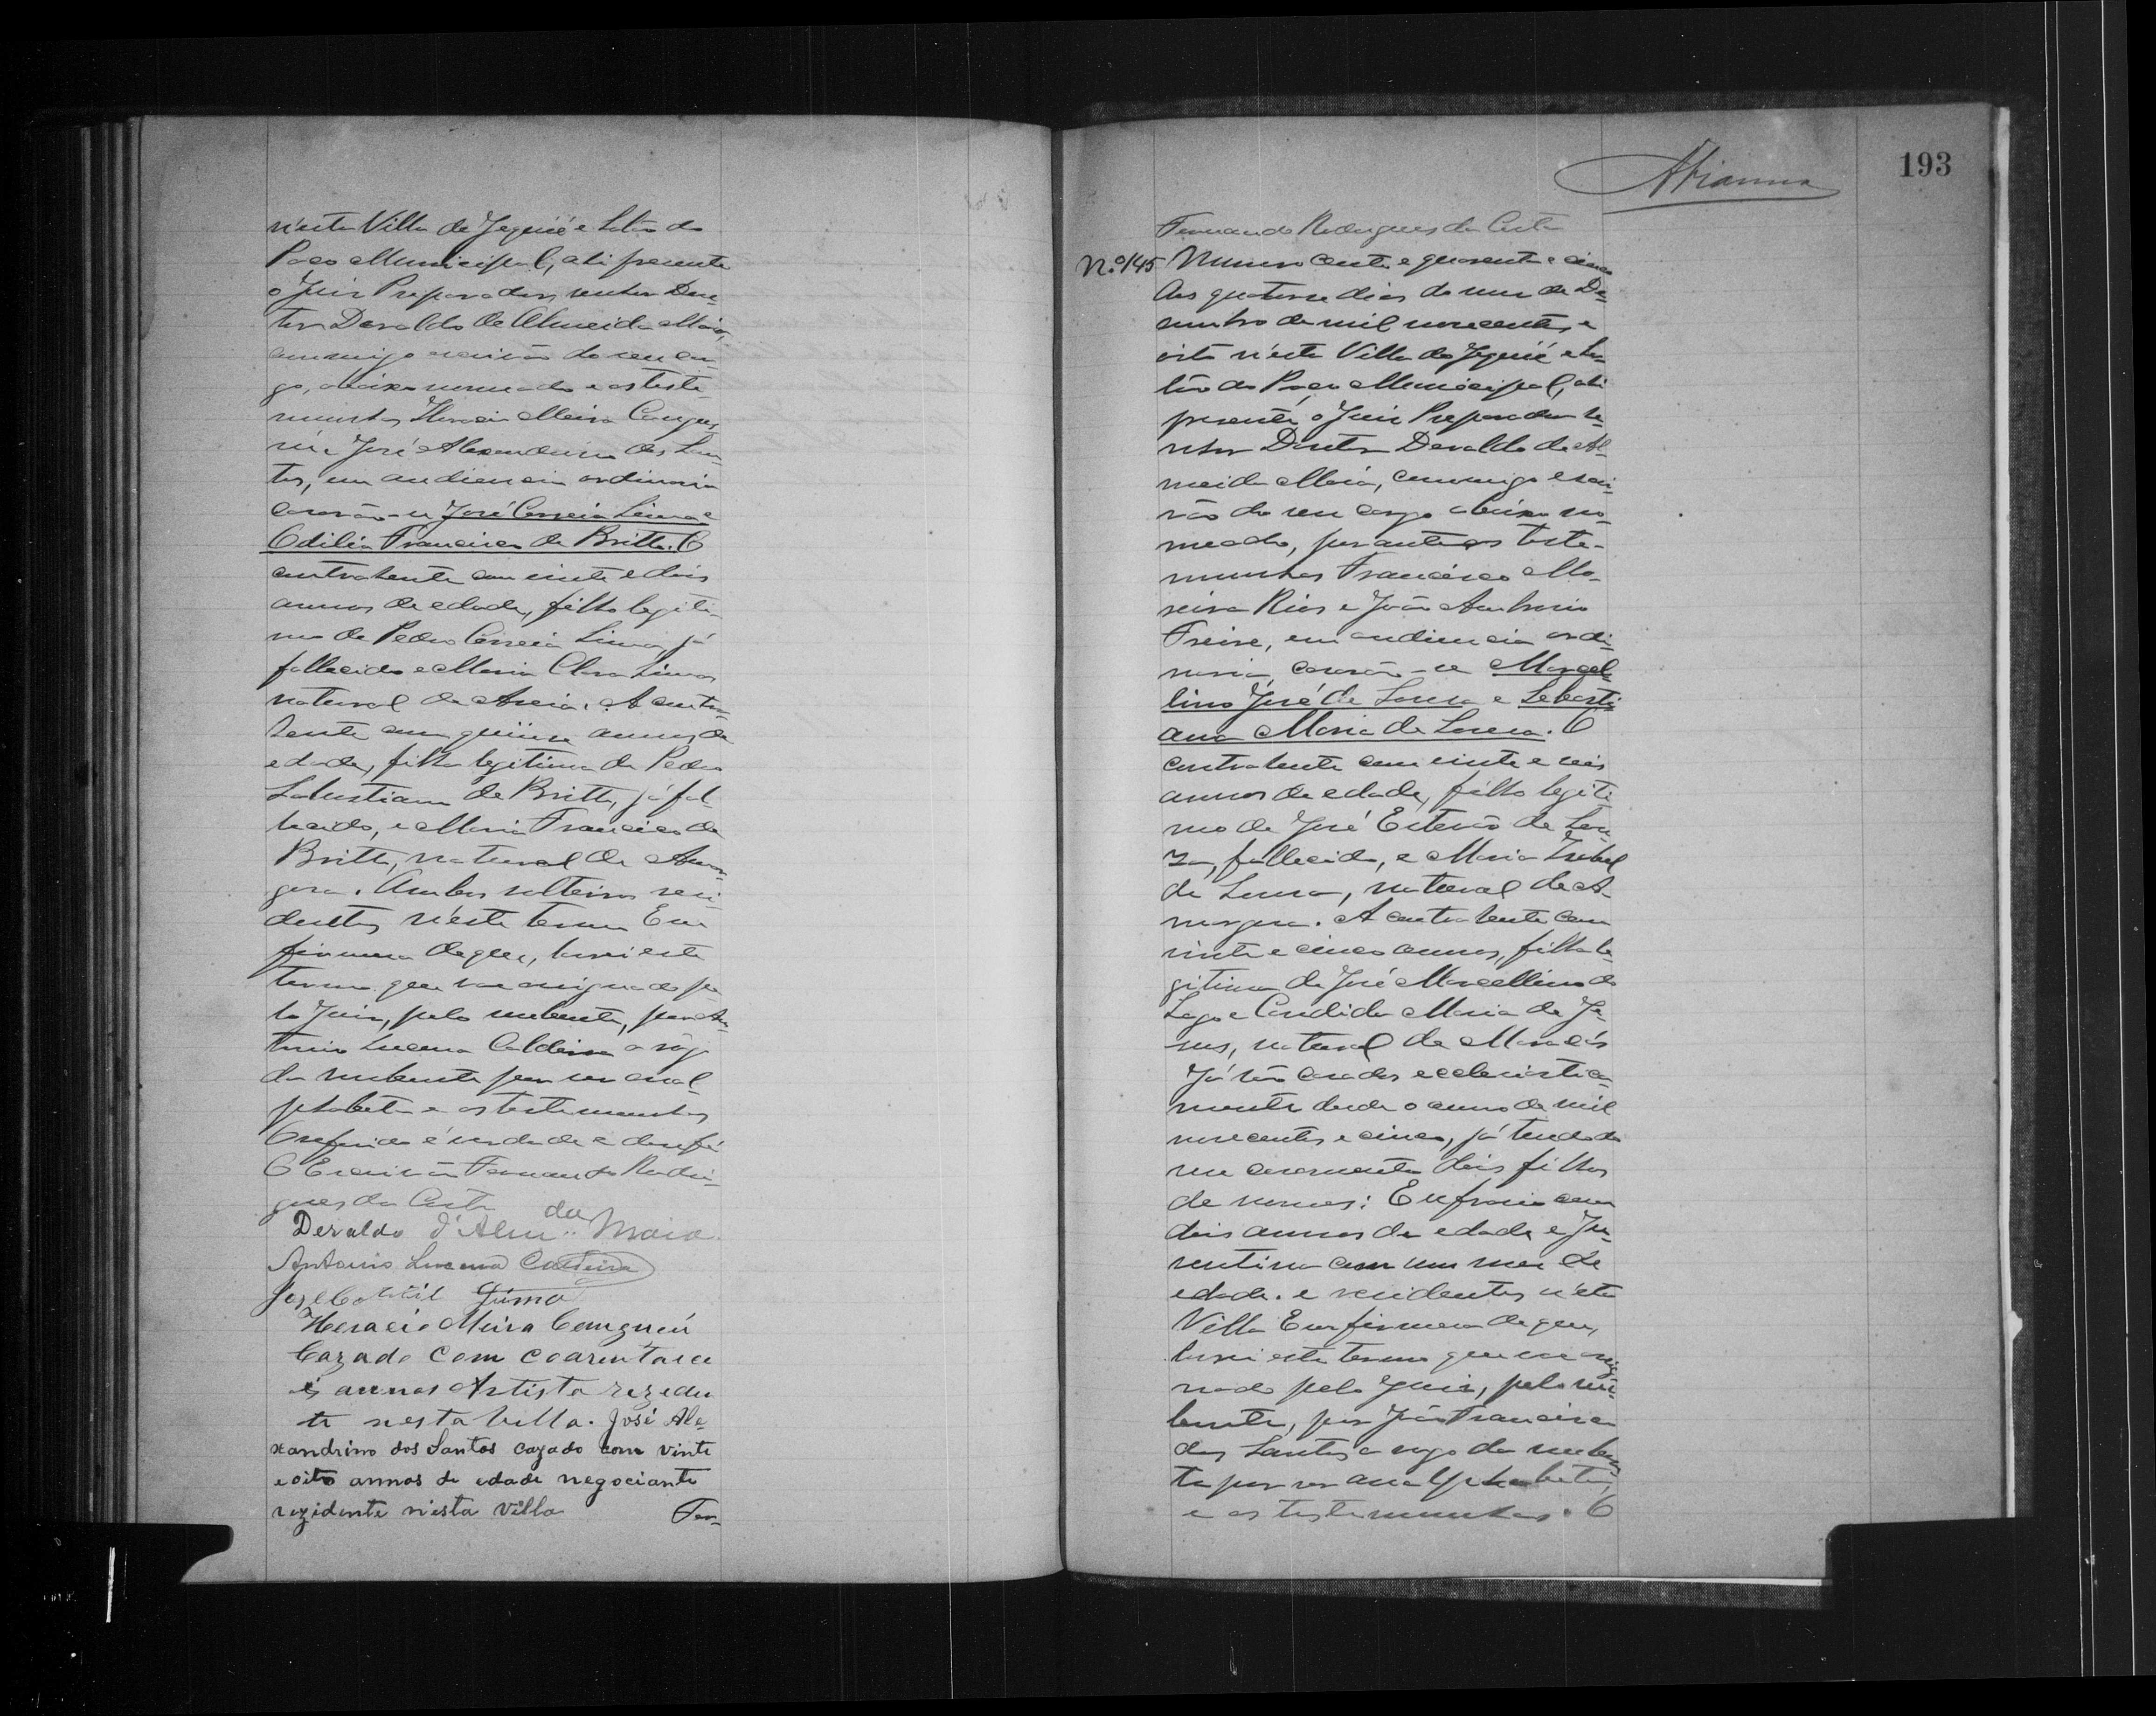 n'esta Villa de Jequié e Salão do
Paço Municipal, ahi presente
o Juiz Preparador, senhor Dou-
tor Deraldo de Almeida Maia,
commigo escrivão do seu car-
go, abaixo nomeado e as teste-
munhas Horacio Meira Cangus-
sú e José Alexandrino dos San-
tos, em audiencia ordinaria
casarão-se José Correia Lima e
Odilia Francisca de Britto. O
contrahente com vinte e dois
annos de edade, filho legiti-
mo de Pedro Correia Lima, já
fallecido e Maria Clara Lima
natural de Areia. A contra-
hente com quinze annos de
edade, filha legitima de Pedro
Salustiano de Britto, já fal-
lecido, e Maria Francisca de
Britto, natural de Amar-
gosa. Ambos solteiros resi-
dentes n'este termo Em
firmeza do que, lavrei este
termo que vae assignado pe-
lo Juiz, pelo nubente, por An-
tonio Lucena Caldeira a rogo
da nubente por ser anal-
phabeta e as testemunhas
O referido é verdade e dou fé
O Escrivão Fernando Rodri-
gues da Costa
Deraldo d'Alm.da Maia
Antonio Lucena Caldeira
Lima
Horacio Meira Cangucú
Cazado com coarenta e ce
is annos Artista rezeden
te nesta Villa. José Ale-
xandrino dos Santos cazado com vinte
e oito annos de edade negociante
rezidente n'esta Villa Fer-
193
Fernando Rodrigues da Costa
N.º 145 Numero cento e quarenta e cinco
Aos quatorze dias do mez de De-
zembro de mil novecentos e
oito n'esta Villa de Jequié e Sa-
lão do Paço Municipal, ahi
presente o Juiz Preparador se-
nhor Doutor Deraldo de Al-
meida Maia, commigo escri-
vão do seu cargo abaixo no-
meado, perante as teste-
munhas Francisco Mo-
reira Rios e João Ambrosio
Freire, em audiencia ordi-
naria, casarão-se Marcel-
lino José de Souza e Sebasti-
ana Maria de Souza. O
contrahente com vinte e seis
annos de edade, filho legiti-
mo de José Estevão de Sou-
za, fallecido, e Maria Izabel
de Souza, natural de A-
margosa. A contrahente com
vinte e cinco annos, filha le-
gitima de José Marcellino do
Lago e Candida Maria de Je-
sus, natural de Maracás
Já são casados ecclesiastica-
mente desde o anno de mil
novecentos e cinco, já tendo do
seu casamento dois filhos
de nomes: Eufrasio com
dois annos de edade e Ju-
ventina com um mez de
edade. e residentes n'esta
Villa Em firmeza do que,
lavrei este termo que vae assig-
nado pelo Juiz, pelo nu-
bente, por João Francisco
dos Santos a rogo da nuben-
te por ser analphabeta,
e as testemunhas. O